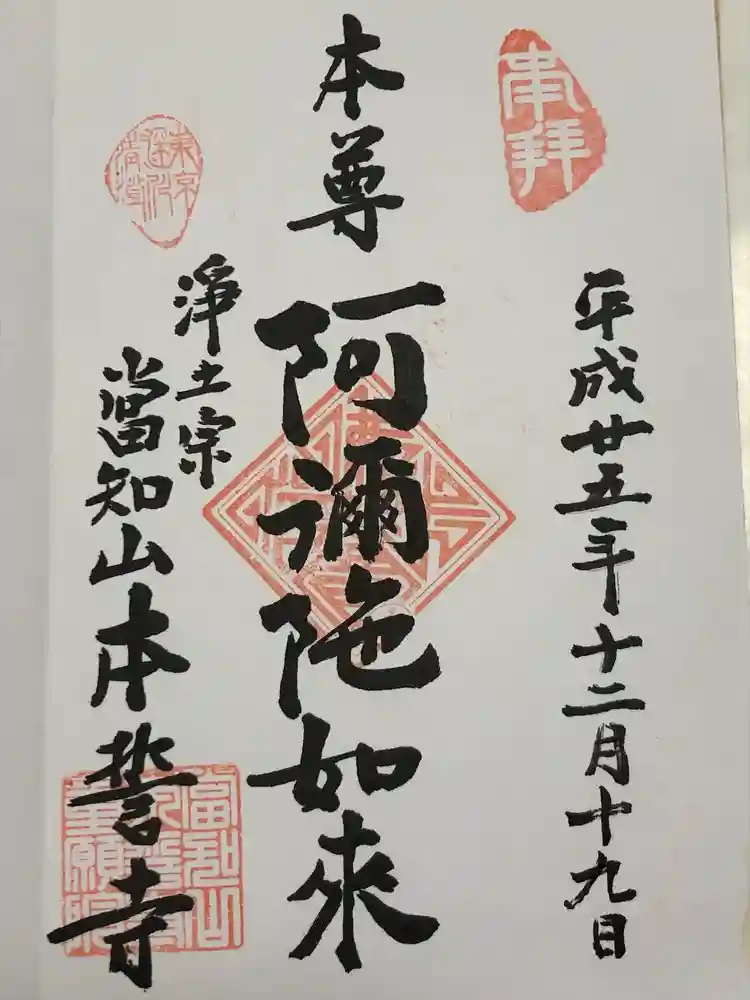 奉拝
平成廿五年十二月十九日
本尊
阿彌陀如來
東京
深川
清澄
淨土宗
當知山本誓寺
當知山
本誓寺
重願院